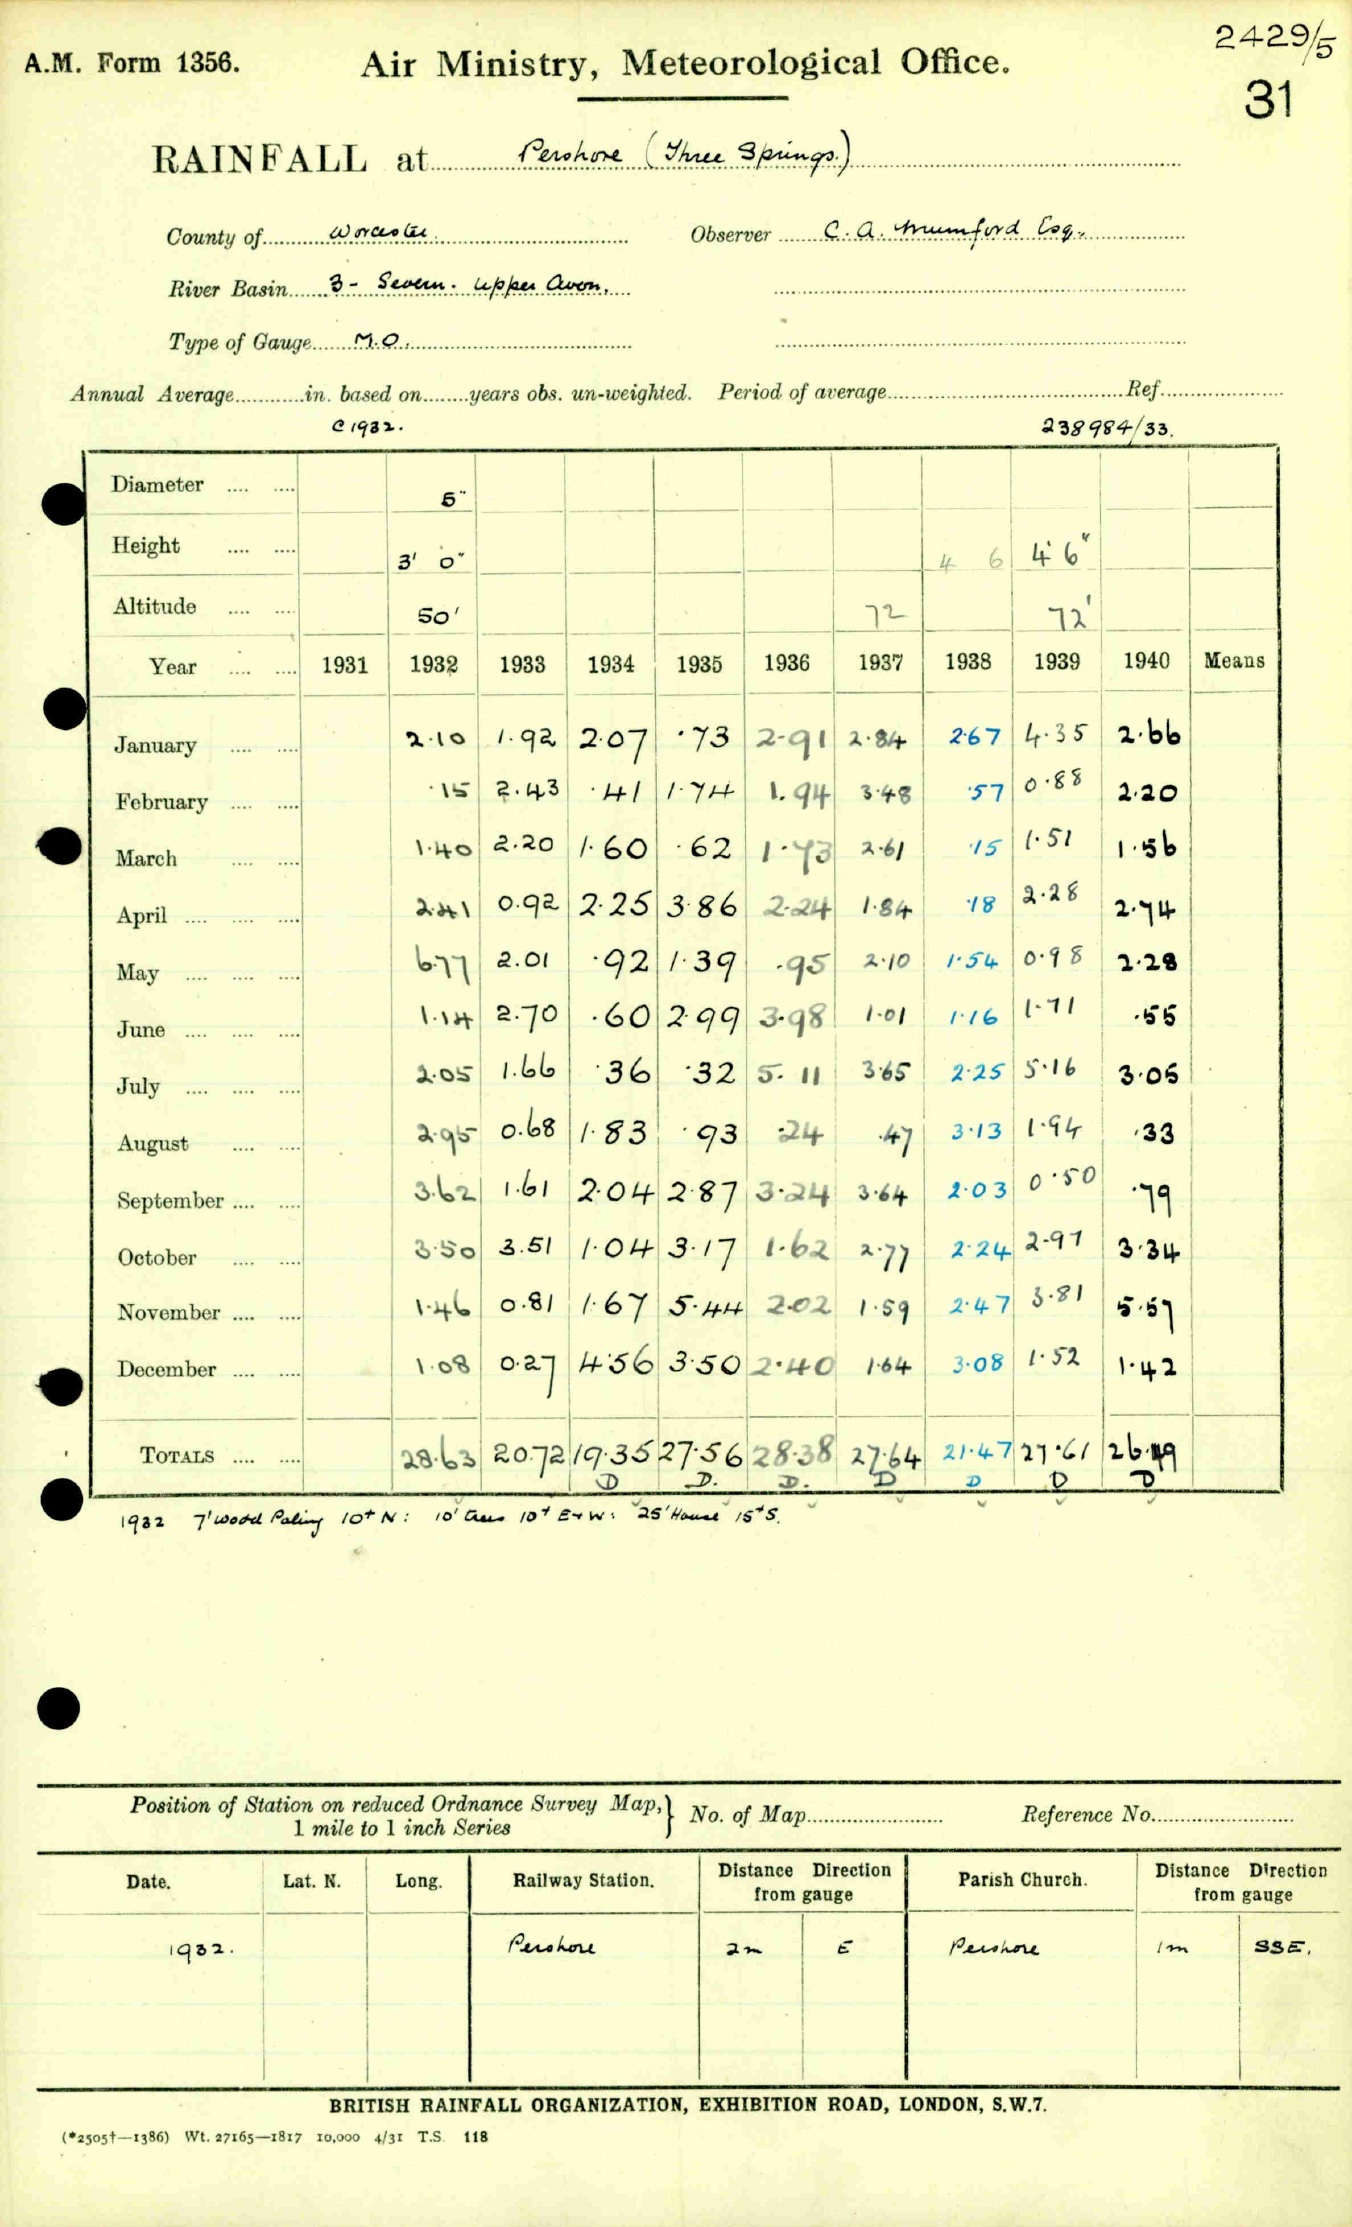 2429/5
A.M. Form 1356. Air Ministry, Meteorological Office.
31
RAINFALL at Pershore (Three Springs.)
County of Worcester. Observer C. A. Mumford Esq.
River Basin 3- Severn. Upper Avon.
Type of Gauge M.O.
Annual Average in. based on years obs. un-weighted. Period of average Ref.
C1932. 238984/33.
Diameter 5"
Height 3' 0" 4 6 4' 6"
Altitude 50' 72 72'
Year 1931 1932 1933 1934 1935 1936 1937 1938 1939 1940 Means
January 2.10 1.92 2.07 .73 2.91 2.84 2.67 4.35 2.66
February .15 2.43 .41 1.74 1.94 3.48 .57 0.88 2.20
March 1.40 2.20 1.60 .62 1.73 2.61 .15 1.51 1.56
April 2.41 0.92 2.25 3.86 2.24 1.84 .18 2.28 2.74
May 6.77 2.01 .92 1.39 .95 2.10 1.54 0.98 2.28
June 1.14 2.70 .60 2.99 3.98 1.01 1.16 1.71 .55
July 2.05 1.66 .36 .32 5.11 3.65 2.25 5.16 3.05
August 2.95 0.68 1.83 .93 .24 .47 3.13 1.94 .33
September 3.62 1.61 2.04 2.87 3.24 3.64 2.03 0.50 .79
October 3.50 3.51 1.04 3.17 1.62 2.77 2.24 2.97 3.34
November 1.46 0.81 1.67 5.44 2.02 1.59 2.47 3.81 5.57
December 1.08 0.27 4.56 3.50 2.40 1.64 3.08 1.52 1.42
TOTALS 28.63 20.72 19.35 27.56 28.38 27.64 21.47 27.61 26.49
D D. D. D D D D
1932 7' Wood Paling 10+ N: 10' trees 10+ E+W: 25' House 15+ S.
Position of Station on reduced Ordnance Survey Map,} No. of Map Reference No.
1 mile to 1 inch Series
Date. Lat. N. Long. Railway Station. Distance Direction from gauge Parish Church. Distance Direction from gauge
1932. Pershore 2m E Pershore 1m SSE.
BRITISH RAINFALL ORGANIZATION, EXHIBITION ROAD, LONDON, S.W.7.
(*2505†—1386) Wt. 27165—1817 10,000 4/31 T.S. 118